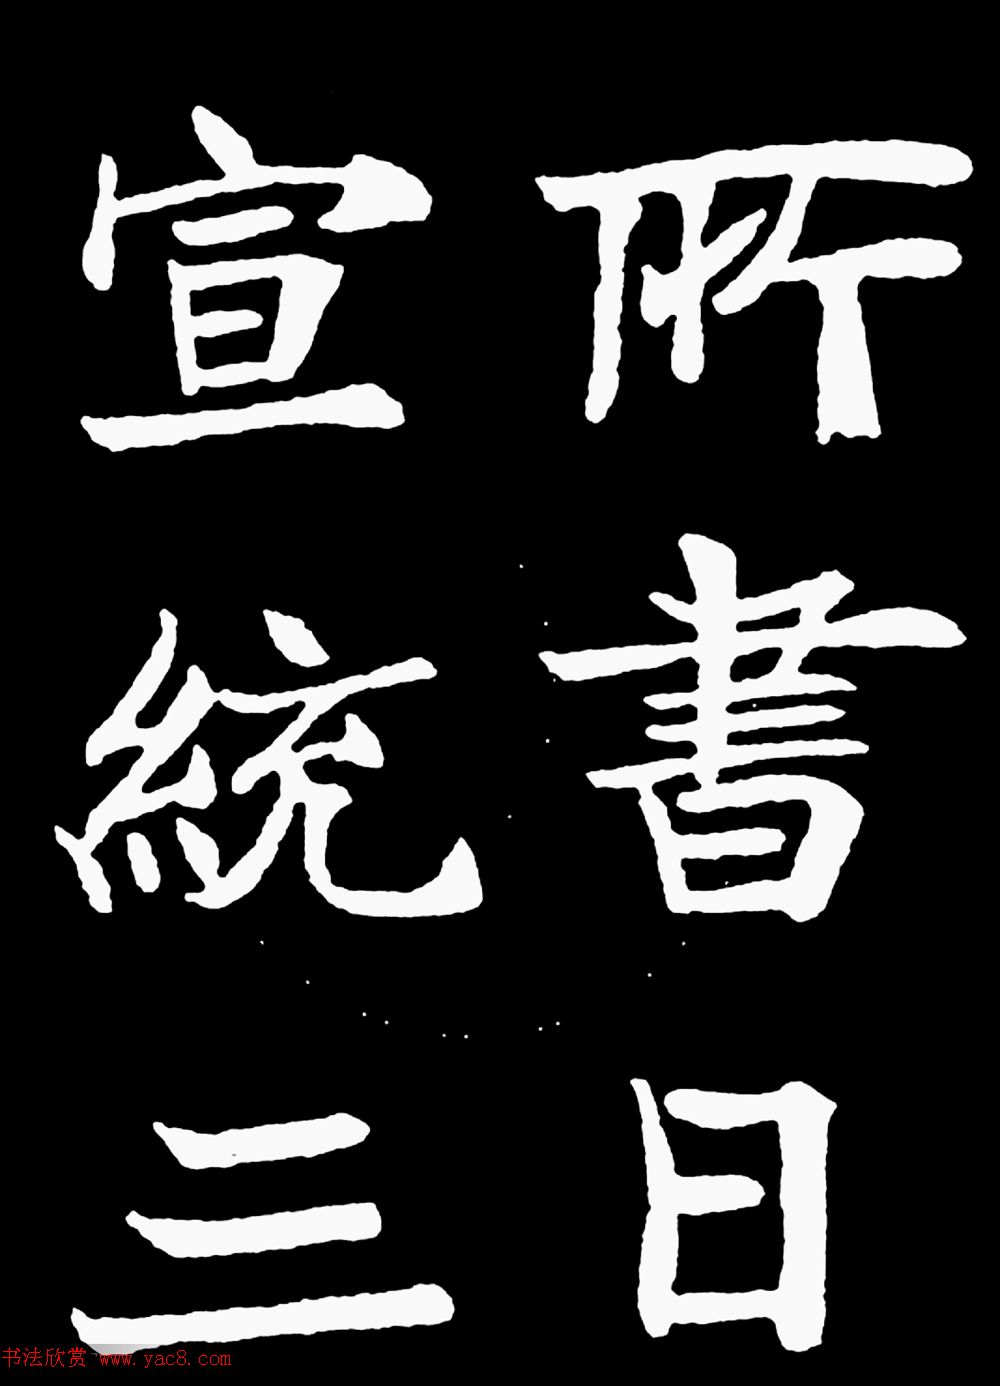 所書日
宣統三
书法欣赏 www.yac8.com